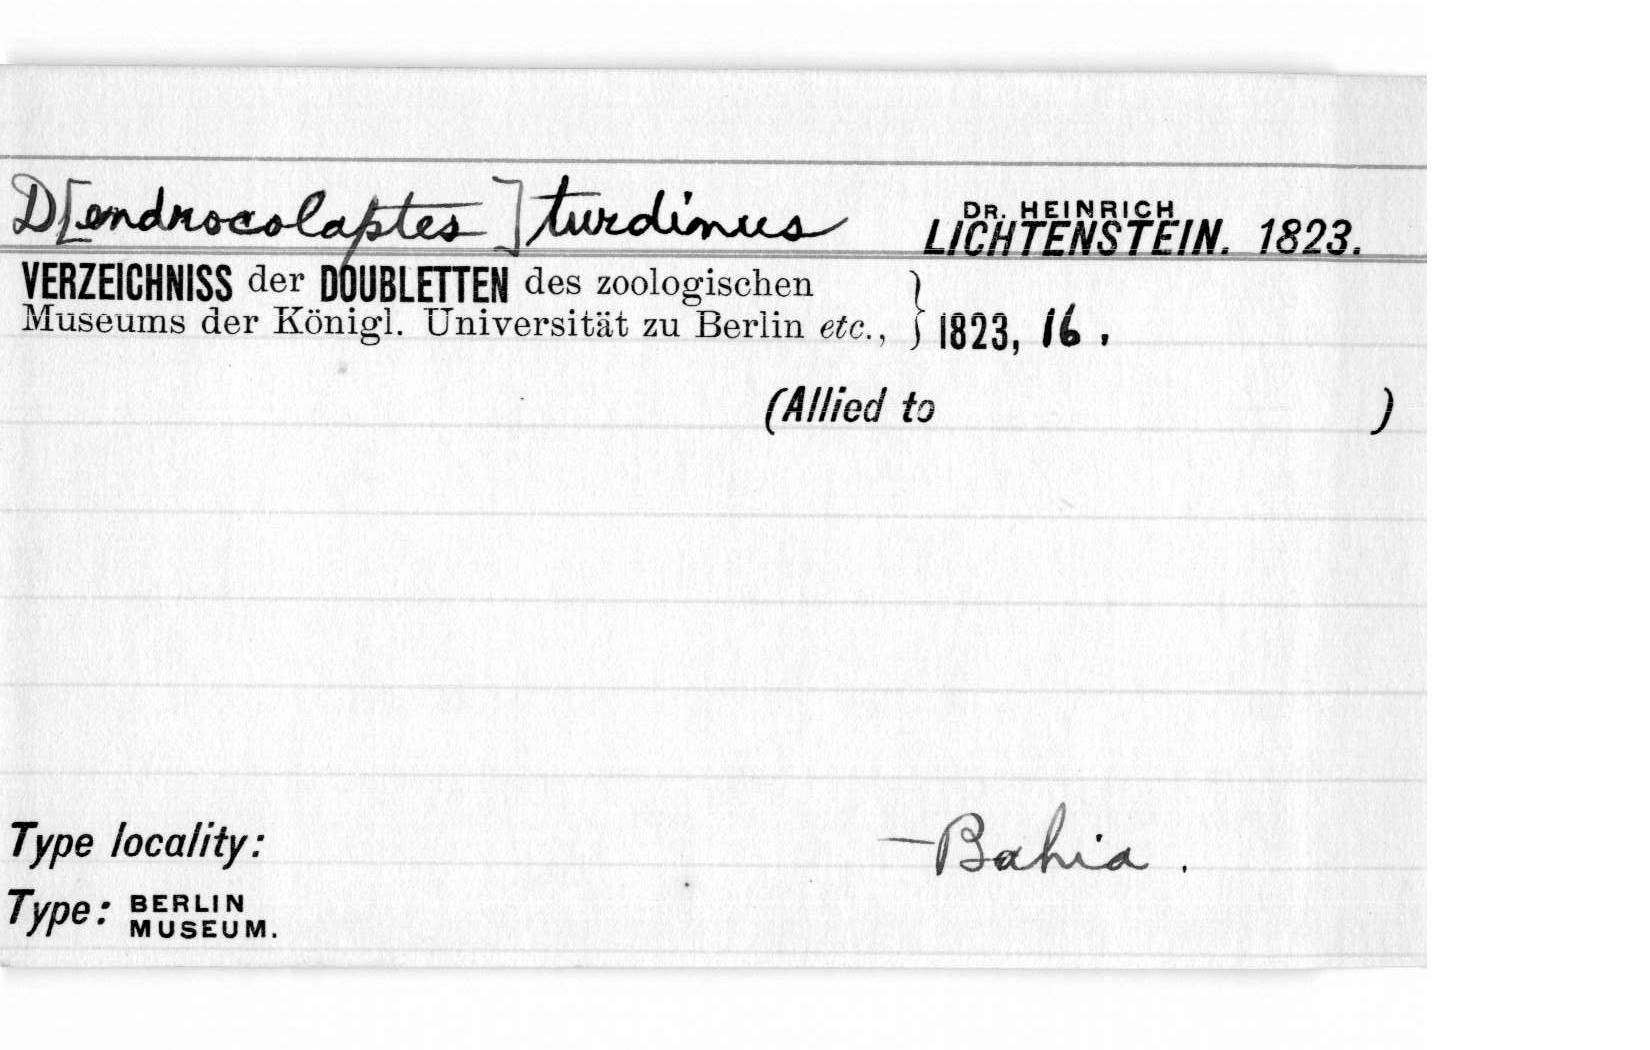 D[endrocolaptes] turdinus DR. HEINRICH LICHTENSTEIN. 1823.
VERZEICHNISS der DOUBLETTEN des zoologischen
Museums der Königl. Universität zu Berlin etc., } 1823, 16.
(Allied to )
Type locality: — Bahia.
Type: BERLIN MUSEUM.